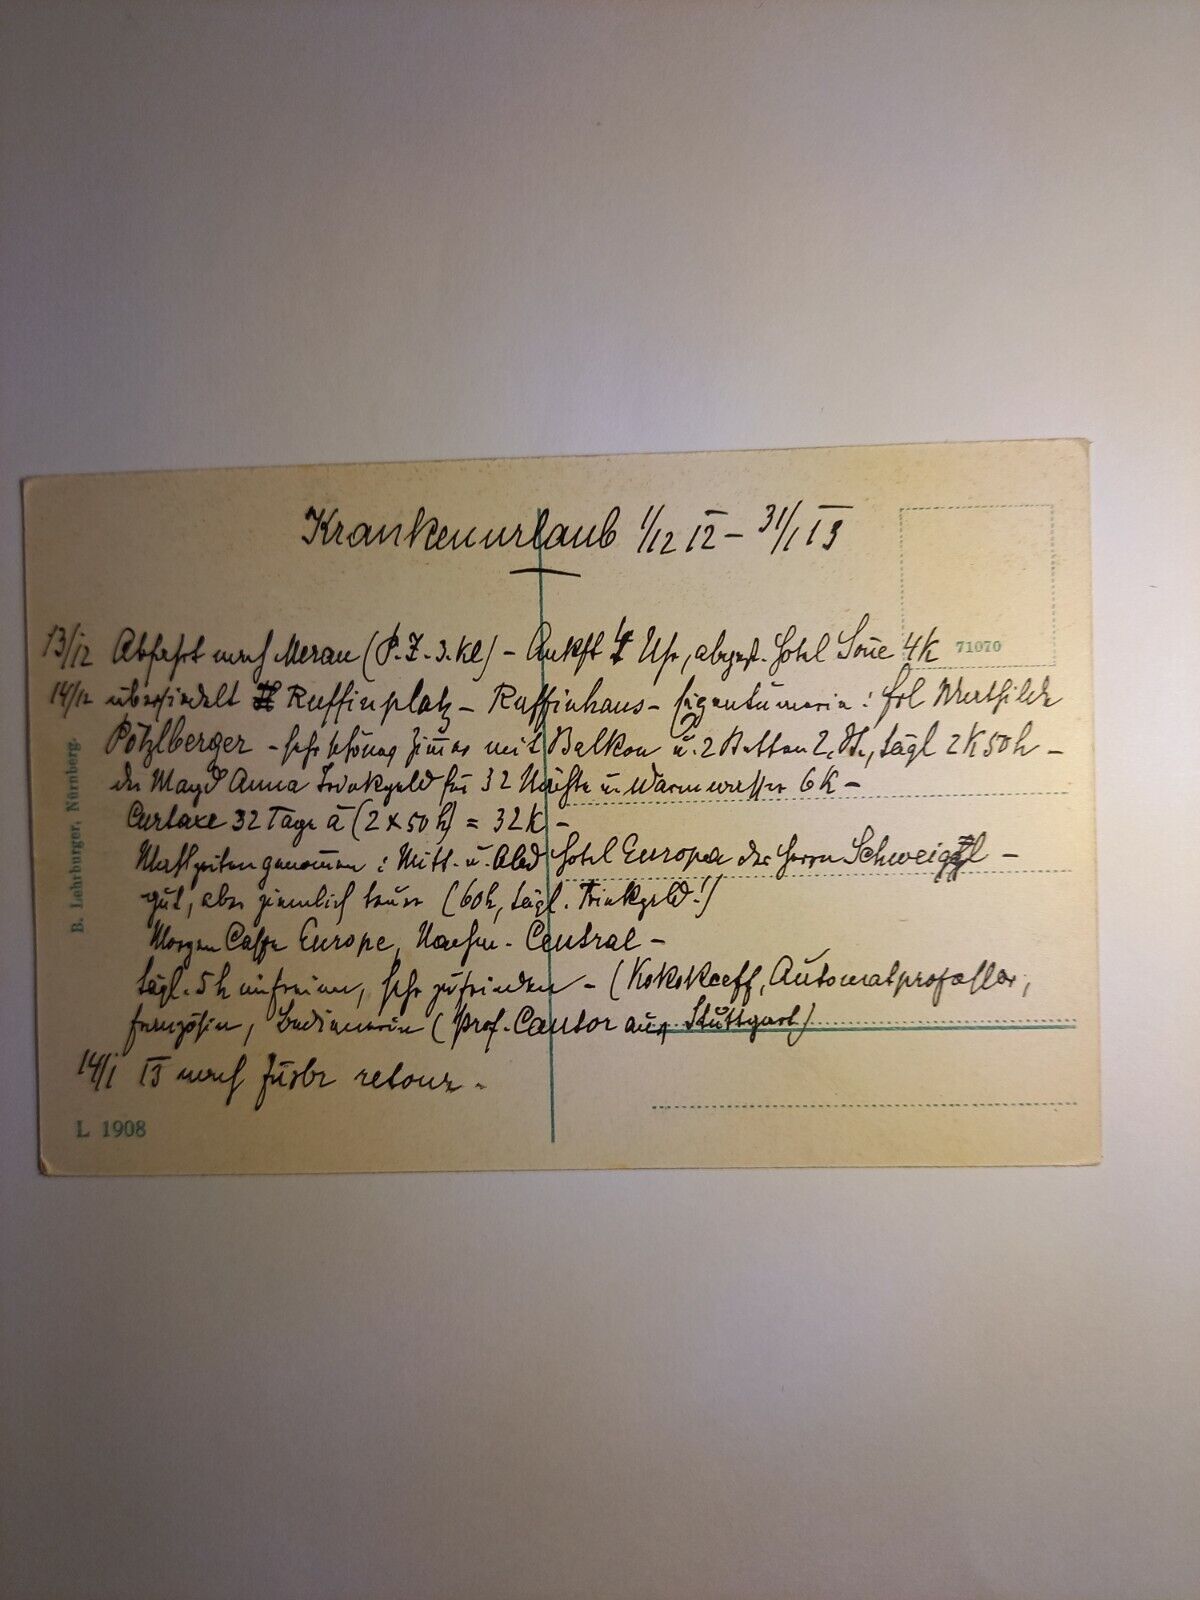 Krankenurlaub 1/12 12 – 31/1 13
13/12 Abfahrt nach Meran (P. Z. 3. Kl) – Ankft 4 Uhr, abgest. Hotel Sonne 4K
71070
14/12 übersiedelt Ruffinplatz – Ruffinhaus – Eigentümerin: Frl Mathilde
Pötzlberger – sehr schönes Zimmer mit Balkon u. 2 Betten 2. St., tägl 2K 50h –
der Magd Anna Trinkgeld für 32 Nächte u. Warmwasser 6K –
Curtaxe 32 Tage à (2 x 50 h) = 32K –
Mahlzeiten genommen: Mitt. u. Abd Hotel Europa des Herrn Schweiggl –
gut, aber ziemlich teuer (60h, tägl. Trinkgeld!)
Morgen Caffe Europe, Nachm. Central –
tägl. 5h, sehr zufrieden – (Automatprofessor,
Französin, (Prof. Cantor aus Stuttgart)
14/1 13 nach retour.
B. Lehrburger, Nürnberg.
L 1908